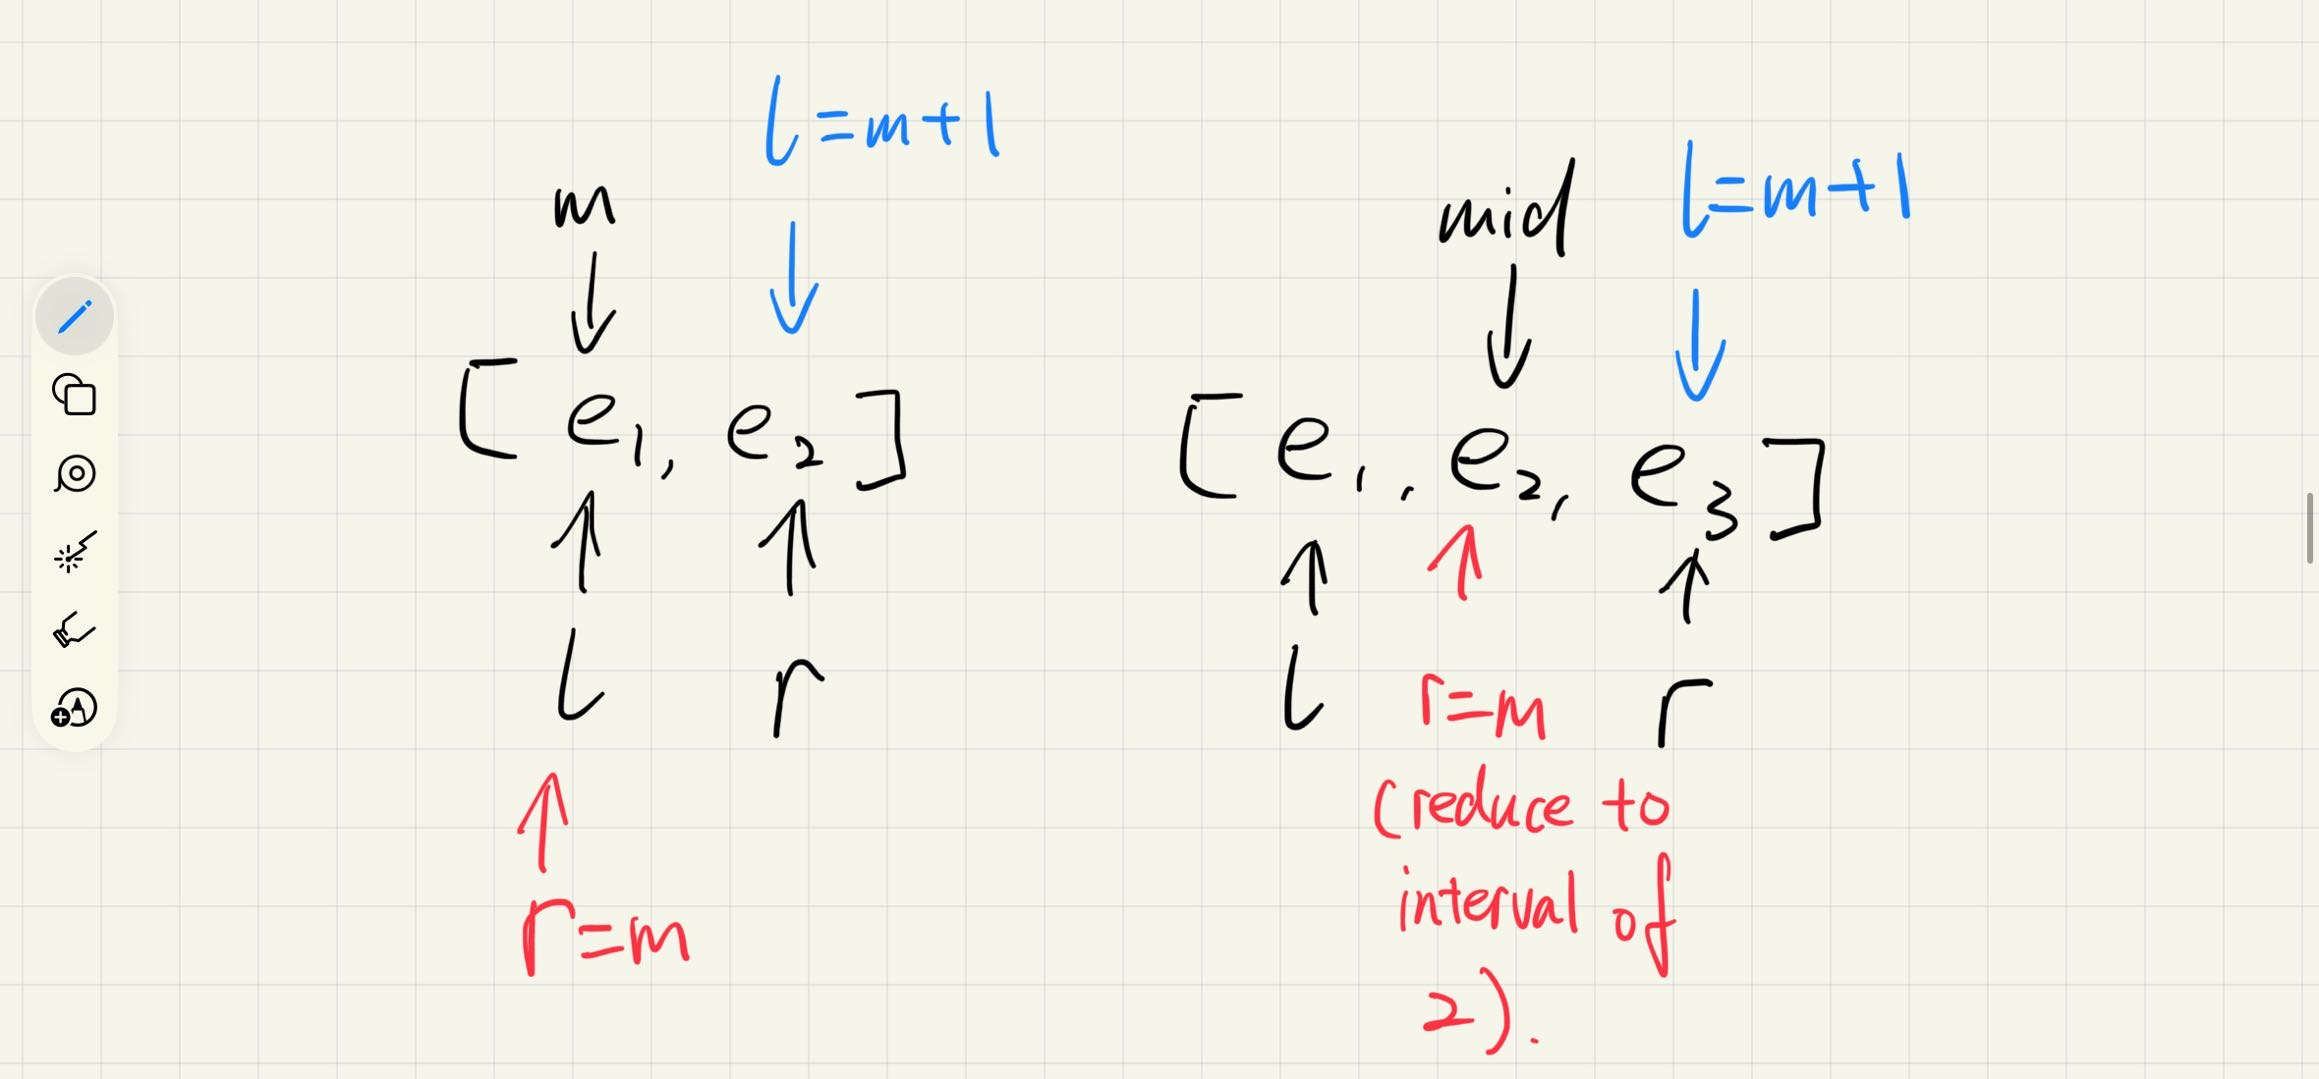 l=m+1
m
[e1, e2]
l r
r=m
l=m+1
mid
[e1, e2, e3]
l r=m r
(reduce to
interval of
2).